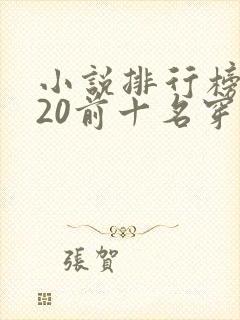 小說排行榜
20前十名穿
張賀